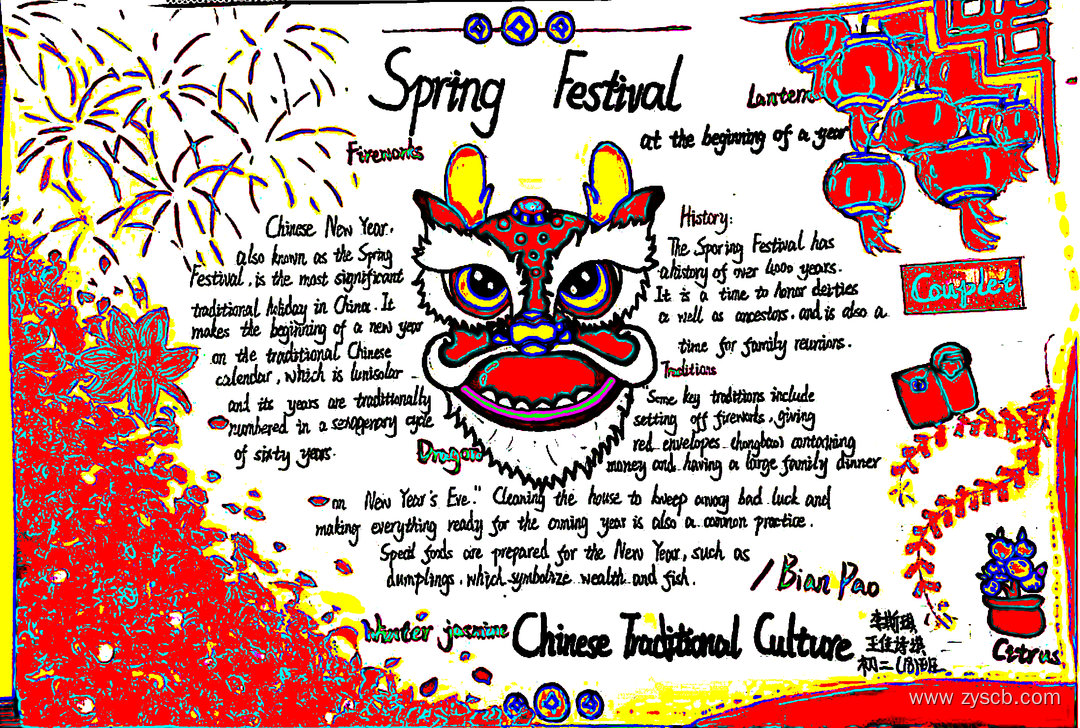 Spring Festival
Lantern
at the beginning of a year
Fireworks
Chinese New Year,
also known as the Spring
Festival, is the most significant
traditional holiday in China. It
makes the beginning of a new year
on the traditional Chinese
calendar, which is lunisolar
and its years are traditionally
numbered in a sexagenary cycle
of sixty years.
Dragon
History:
The Sporing Festival has
a history of over 4000 years.
It is a time to honor deities
a well as ancestors, and is also a
time for family reunions.
Couplet
Traditions
"Some key traditions include
setting off fireworks, giving
red envelopes hongbao containing
money and having a large family dinner
on New Year's Eve." Cleaning the house to sweep away bad luck and
making everything ready for the coming year is also a common practice.
Special foods are prepared for the New Year, such as
dumplings, which symbolize wealth and fish.
/ Bian Pao
Winter jasmine
Chinese Traditional Culture
初二(18)班
Citrus
www.zyscb.com